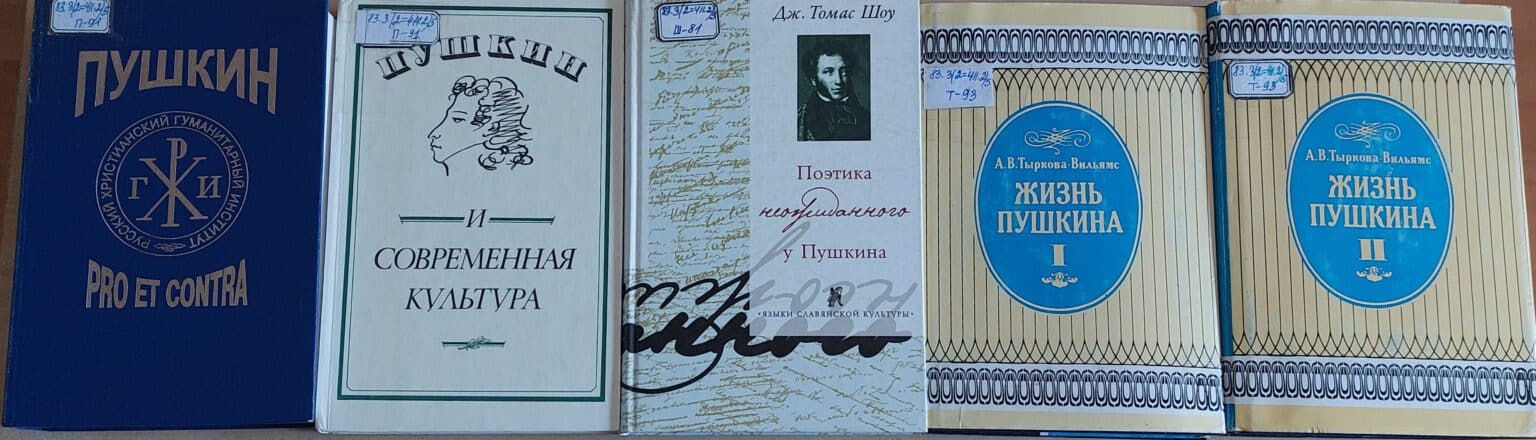 83.3/2=411.2/5
П-91
ПУШКИН
РУССКИЙ ХРИСТИАНСКИЙ ГУМАНИТАРНЫЙ ИНСТИТУТ
Г И
PRO ET CONTRA
83.3/2=411.2/5
П-91
ПУШКИН
И
СОВРЕМЕННАЯ
КУЛЬТУРА
83.3/2=411.2/5
Ш-81
Дж. Томас Шоу
Поэтика
неожиданного
у Пушкина
«ЯЗЫКИ СЛАВЯНСКОЙ КУЛЬТУРЫ»
83.3/2=411.2/5
Т-93
А.В.Тыркова-Вильямс
ЖИЗНЬ
ПУШКИНА
I
83.3/2=411.2/5
Т-93
А.В.Тыркова-Вильямс
ЖИЗНЬ
ПУШКИНА
II